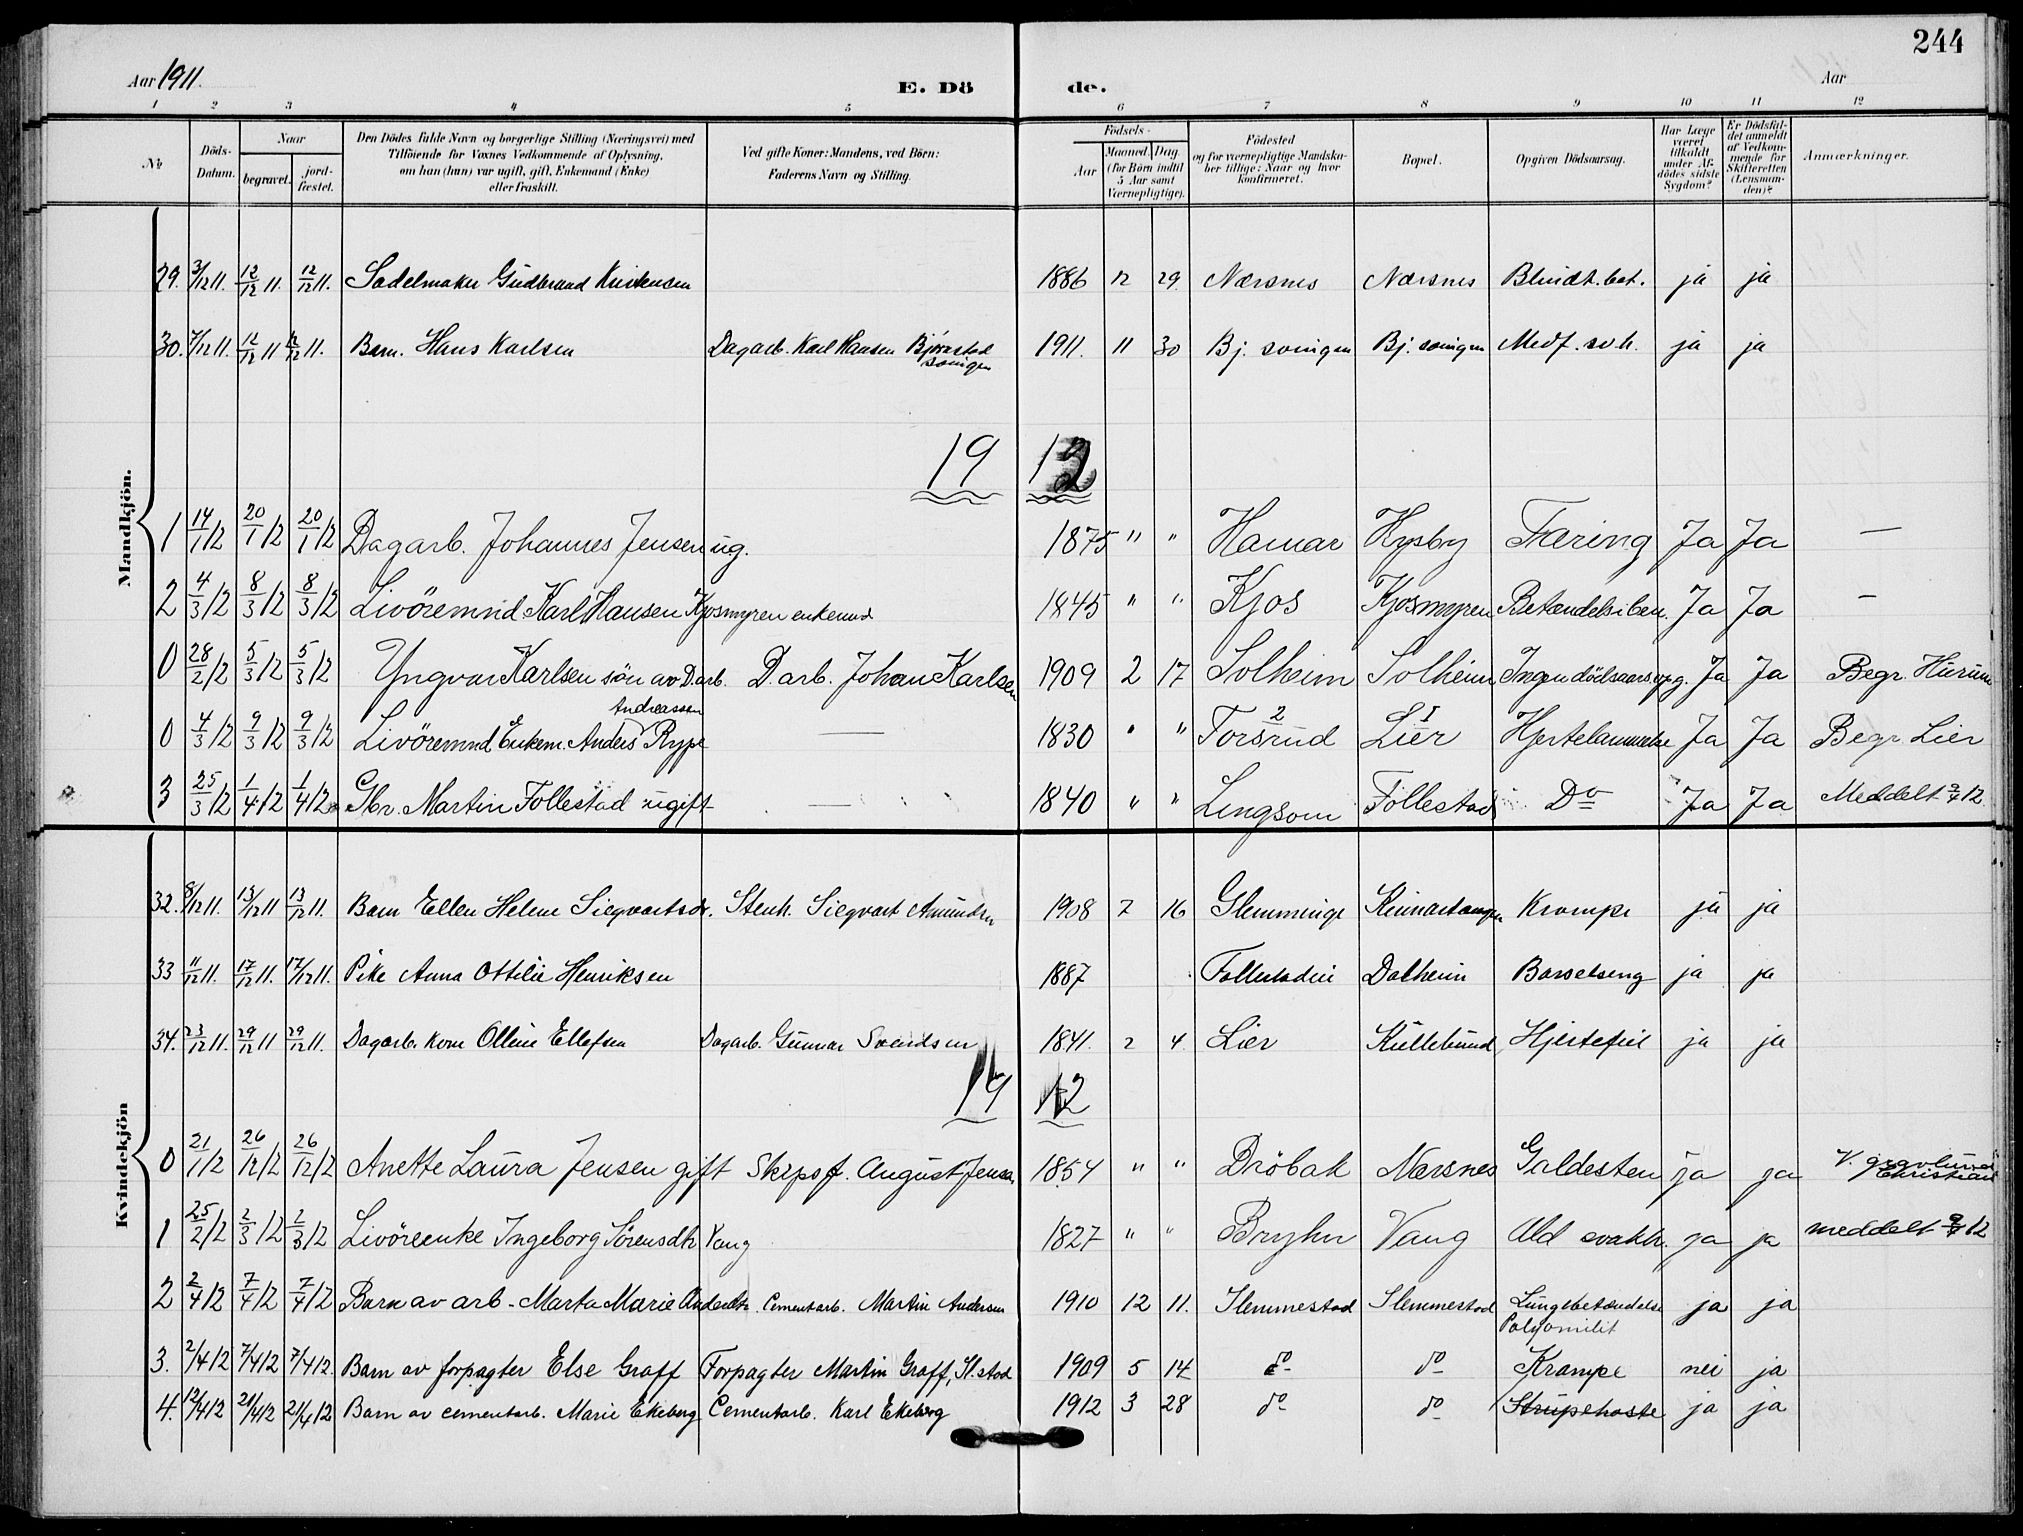 244
Aar 1911. E. Dö de. Aar
1 2 3 4 5 6 7 8 9 10 11 12
No
Döds-Datum.
Naar
begravet.
jord-fæstet.
Den Dödes fulde Navn og borgerlige Stilling (Næringsvei) med
Tilföiende for Voxnes Vedkommende af Oplysning,
om han (hun) var ugift, gift, Enkemand (Enke)
eller fraskilt.
Ved gifte Koner: Mandens, ved Börn:
Faderens Navn og Stilling.
Födsels-
Aar
Maaned. Dag.
(for Börn indtil
5 Aar samt
Værnepligtige).
Födested
og for værnepligtige Mandska-
ber tillige: Naar og hvor
konfirmeret.
Bopæl.
Opgiven Dödsaarsag.
Har Læge
været
tilkaldt
under Af-
dödes sidste
Sygdom?
Er Dödsfal-
det anmeldt
af Vedkom-
mende for
Skifteretten
(Lensman-
den)?
Anmærkninger.
Mandkjön.
29. 3/12 11. 12/12 11 12/12 11. Sadelmaker Gudbrand Kristensen 1886 12 29. Nærsnes Nærsnes Blindt. bet. ja ja
30. 7/12 11. 12/12 11 12/12 11. Barn. Hans Karlsen Dagarb. Karl Hansen Bjørnstad 1911. 11 30 Bj. svingen Bj. svingen Medf. svh. ja ja
svingen
19 12
1 14/1 12 20/1 12 20/1 12 Dagarb. Johannes Jensen ug. 1875 " " Hamar Hysby Tæring Ja Ja —
2 4/3 12 8/3 12 8/3 12 Livöremnd Karl Hansen Kjosmyren enkemnd 1845 " " Kjos Kjosmyren Betændels i ben. Ja Ja —
0 28/2 12 5/3 12 5/3 12 Yngvar Karlsen sön av D.arb. D. arb. Johan Karlsen 1909 2 17 Solheim Solheim Ingen dödsaars. opg. Ja Ja Begr. Hurum
Andreassen
0 4/3 12 9/3 12 9/3 12 Livöremnd Enkem. Anders Rype — 1830 " " Forsrud 2 Lier 1 Hjertelammelse Ja Ja Begr. Lier
3 25/3 12 1/4 12 1/4 12 Gbr. Martin Follestad ugift — 1840 " " Lingsom Follestad Do Ja Ja Meddelt 2/4 12
Kvindekjön
32. 8/12 11. 13/12 11 13/12 11. Barn Ellen Helene Siegvartsdr. Stenh. Siegvart Amundsen 1908 7 16 Glemminge Kinnartangen Krampe ja ja
33 11/12 11. 17/12 11. 17/12 11. Pike Anna Ottilie Henriksen 1887 Follestadeie Dalheim Barselseng ja ja
34. 23/12 11. 29/12 11 29/12 11. Dagarb. kone Olline Ellefsen Dagarb. Gunnar Svendsen 1841. 2 4. Lier Kullebund Hjertefeil ja ja
19 12
0 21/1 12 26/1 12 26/1 12 Anette Laura Jensen gift Skipsf. August Jensen 1854 " " Dröbak Nærsnes Galdesten ja ja V. gravlund Christian
1 25/2 12 2/3 12 2/3 12 Livöreenke Ingeborg Sörensdtr Vang 1827 " " Bryhn Vang Ald. svakh. ja ja meddelt 9/4 12
2 2/4 12 7/4 12 7/4 12 Barn av arb. Marta Marie Andersdtr. Cementarb. Martin Andersen 1910 12 11. Slemmestad Slemmestad Lungebetændelse ja ja
Polyomilit
3. 2/4 12 7/4 12 7/4 12 Barn av forpagter Else Graff Forpagter Martin Graff, Sl.stad 1909 5 14 do do Krampe nei ja
4. 12/4 12 21/4 12 21/4 12 Barn av cementarb. Marie Ekeberg Cementarb. Karl Ekeberg 1912 3 28 do do Strupehoste ja ja